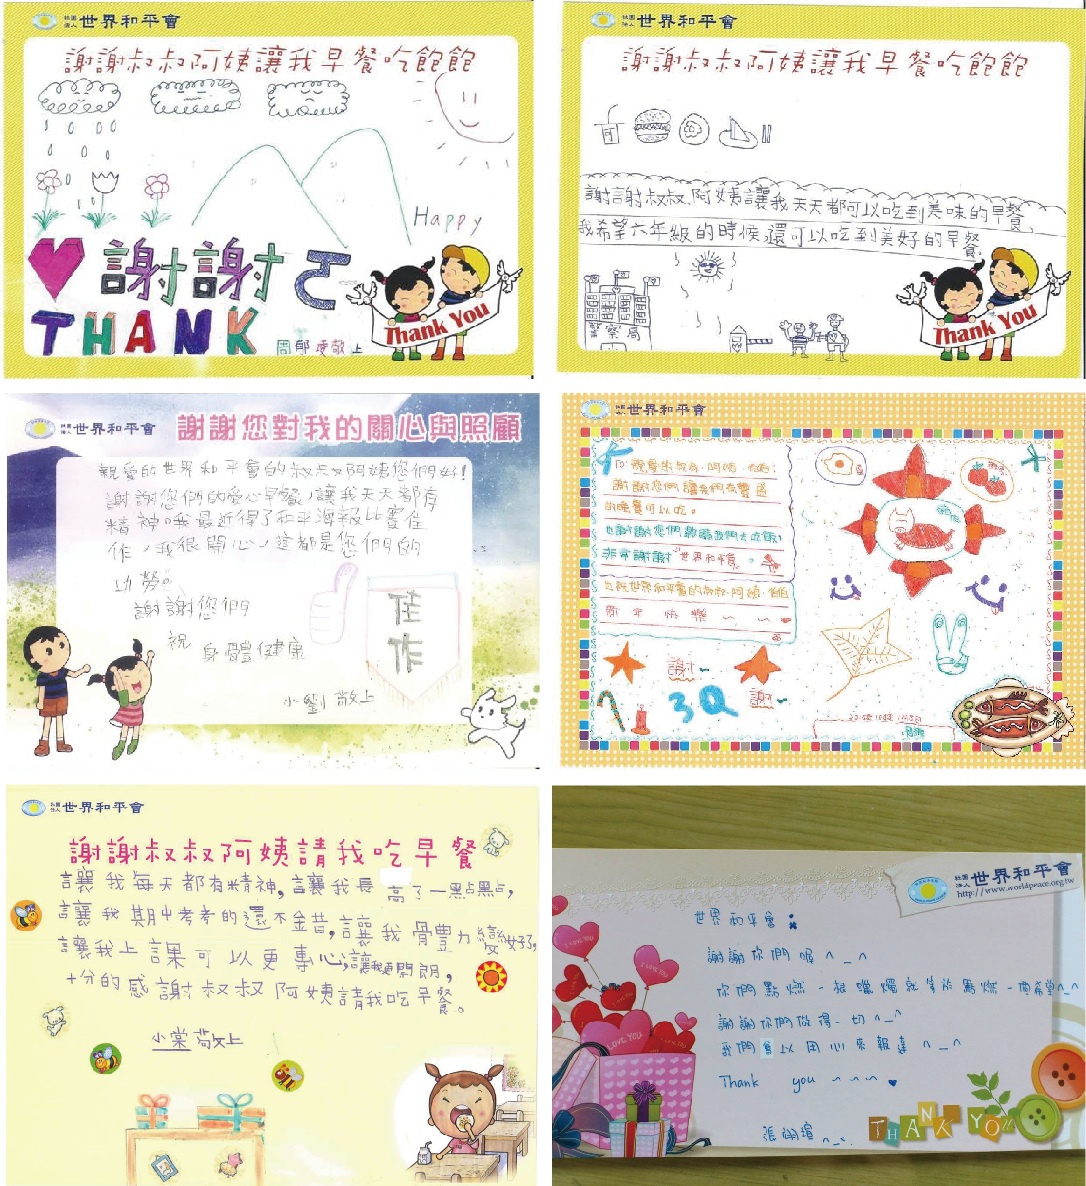 社團法人 世界和平會
謝謝叔叔阿姨讓我早餐吃飽飽
Happy
謝謝
THANK
敬上
Thank You
社團法人 世界和平會
謝謝叔叔阿姨讓我早餐吃飽飽
謝謝叔叔、阿姨讓我天天都可以吃到美味的早餐,
我希望六年級的時候還可以吃到美好的早餐。
警察局
Thank You
社團法人 世界和平會
謝謝您對我的關心與照顧
親愛的世界和平會的叔叔阿姨您們好!
謝謝您們的愛心早餐,讓我天天都有
精神。我最近得了和平海報比賽佳
作,我很開心,這都是您們的
功勞。
謝謝您們
祝
身體健康
佳作
小劉 敬上
社團法人 世界和平會
To 親愛的叔叔、阿姨
謝謝您們讓我們有豐盛
的晚餐可以吃。
也謝謝您們
非常謝謝"世界和平會"。
祝世界和平會的叔叔、阿姨
新年快樂
謝
3Q
謝
社團法人 世界和平會
謝謝叔叔阿姨請我吃早餐
讓我每天都有精神,讓我長高了一點點,
讓我期中考考的還不錯,讓我骨豊力變好了,
讓我上課可以更專心,讓我更開朗,
十分的感謝叔叔阿姨請我吃早餐。
小棠敬上
社團法人 世界和平會
http://www.worldpeace.org.tw
世界和平會:
謝謝你們喔^_^
你們點燃一根蠟燭就等於點燃一個希望^_^
謝謝你們做得一切^_^
我們會以用心來報達^_^
Thank you ~~~ ♥
I LOVE YOU
I LOVE YOU
LOVE YOU
THANK YOU